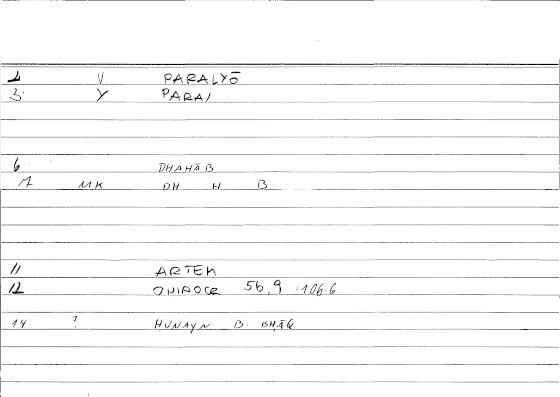 1 V PARALYŌ
3 Y PARAI
6 DHAHĀB
7 MK DH H B
11 ARTEM
12 ONIROCR 56,9 106.6
14 ? HUNAYN B. ISHĀQ